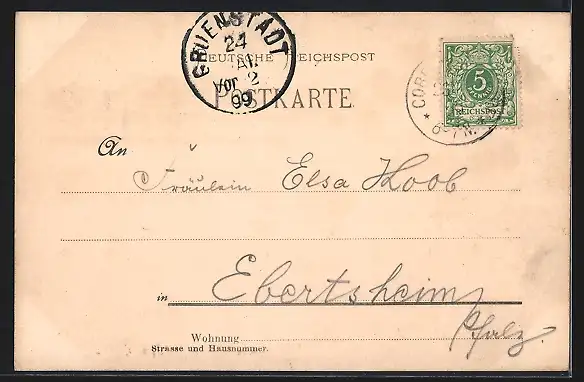 GRUENSTADT
24
Vor 2
99
DEUTSCHE REICHSPOST
POSTKARTE
5
REICHSPOST
An
Fräulein Elsa Koob
in Ebertsheim
Pfalz.
Wohnung
Strasse und Hausnummer.